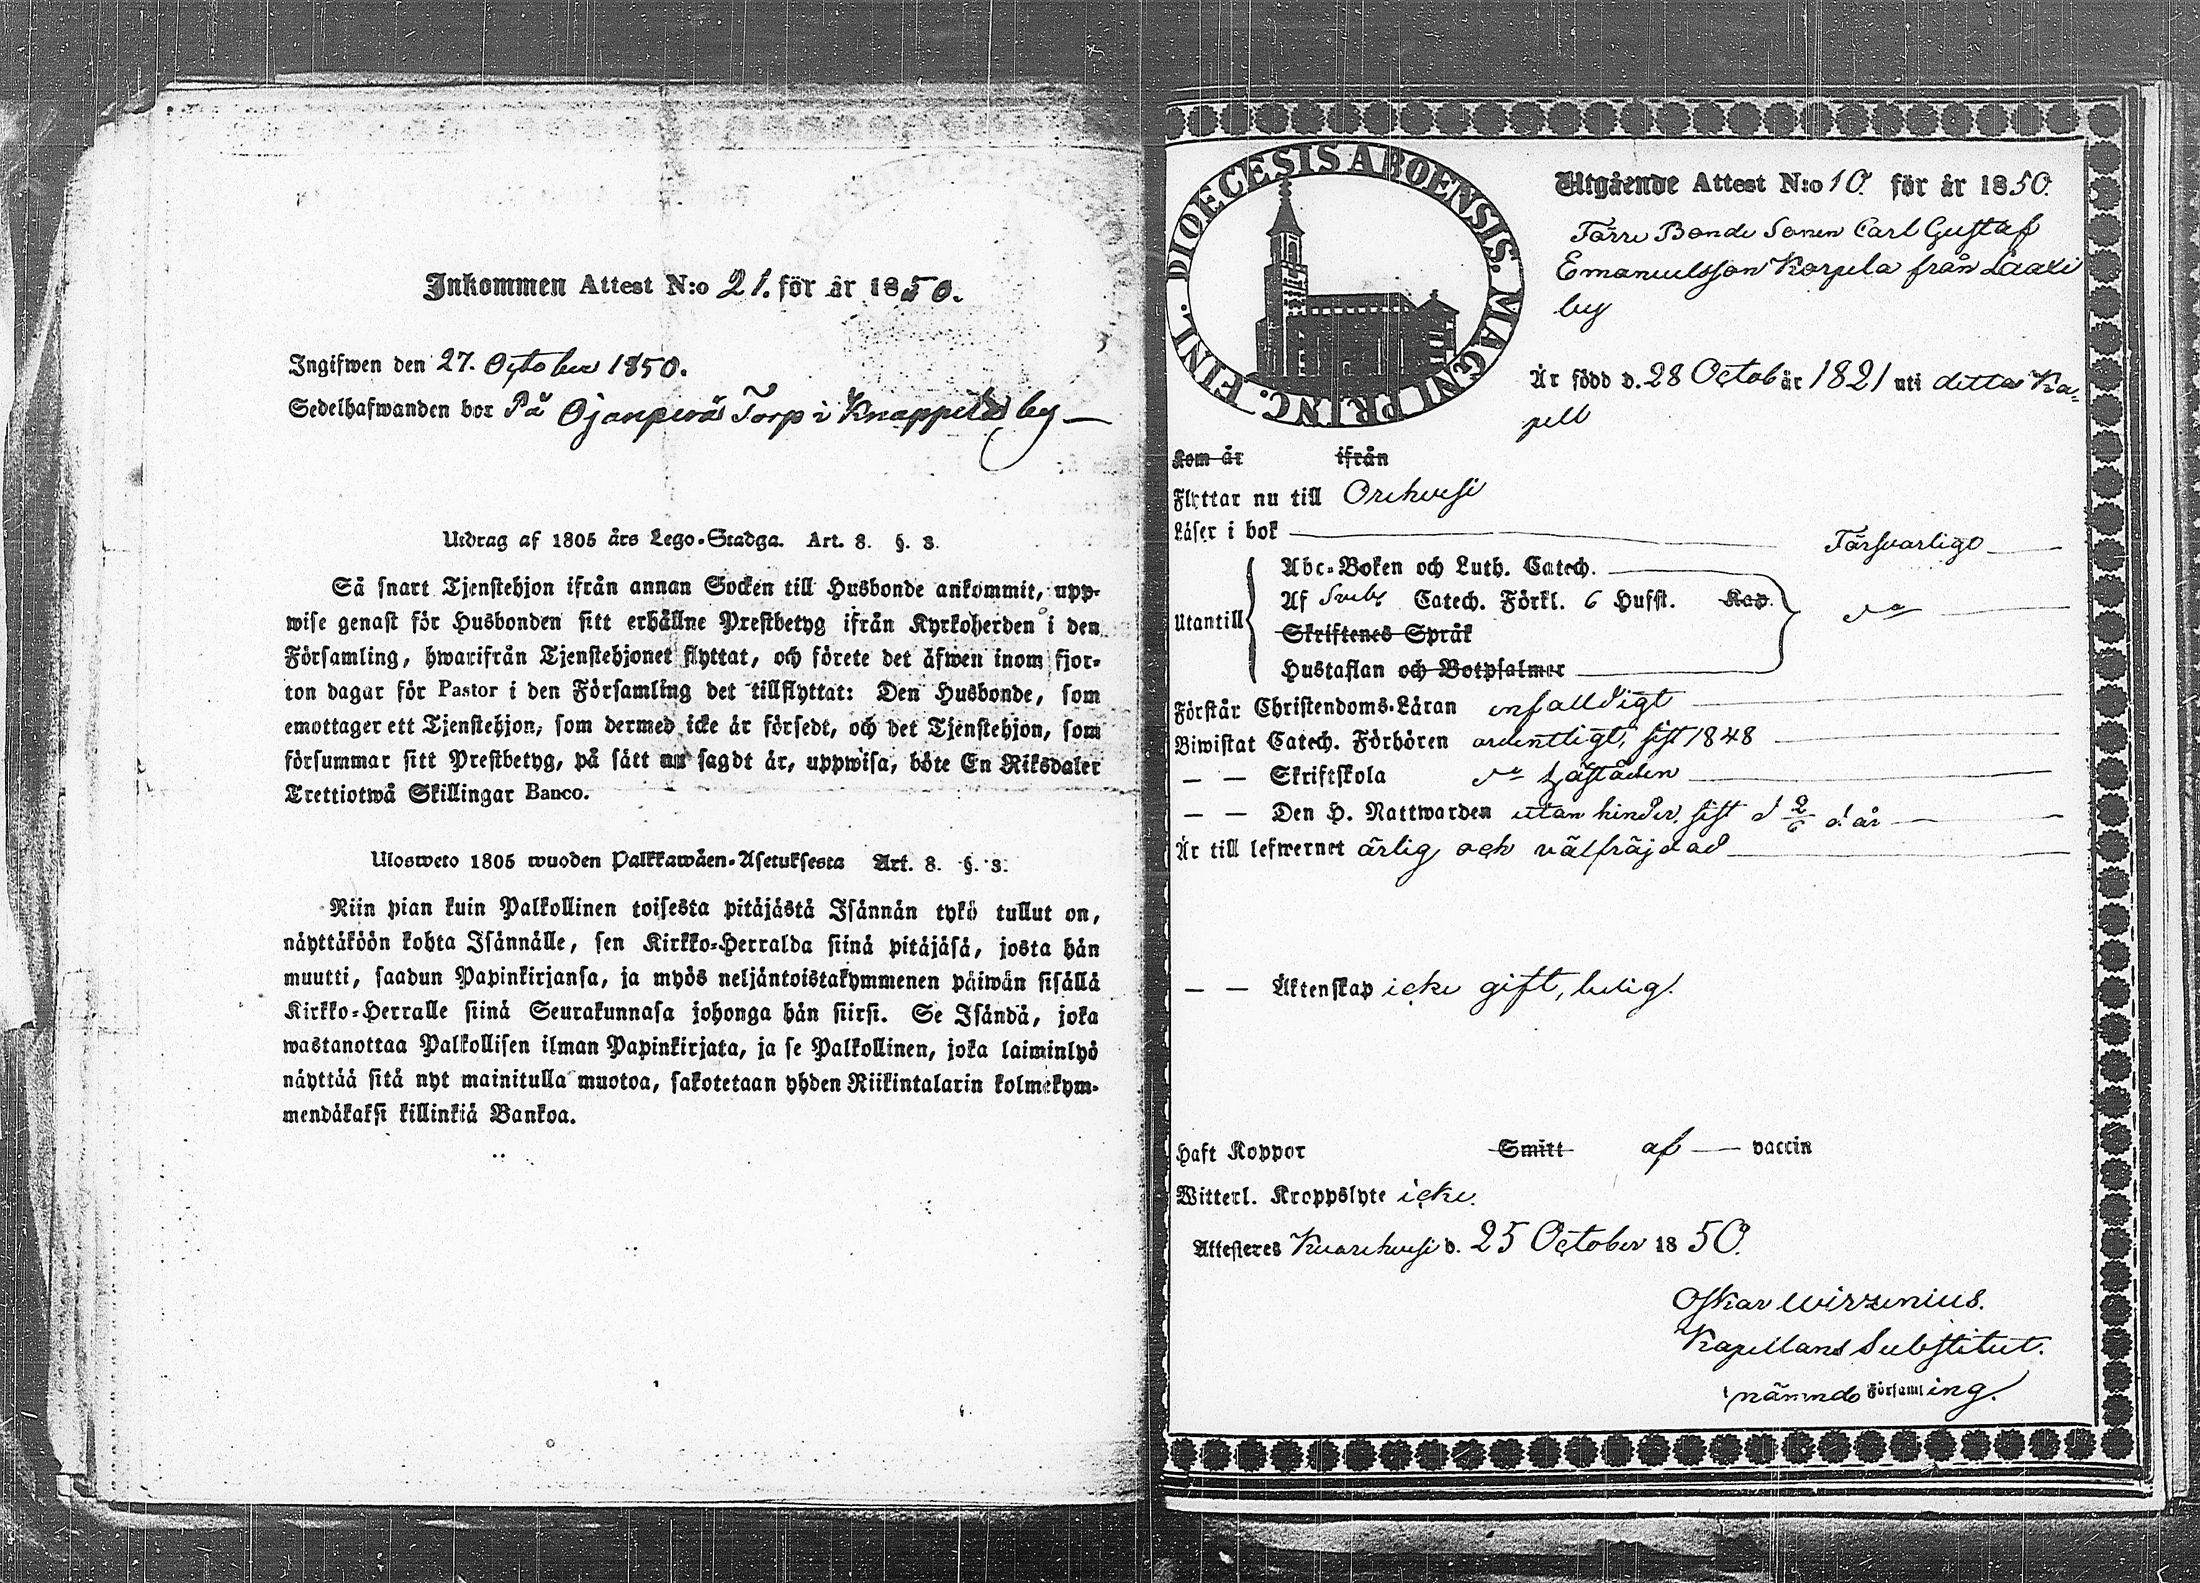 Inkommen Attest N:o 21. för år 1850.
Ingifwen den 27. October 1850.
Sedelhafwanden bor På Ojanperä Torp i Knappila by
Utdrag af 1805 års Lego-Stadga. Art. 8. §. 3.
Så snart Tjenstehjon ifrån annan Socken till Husbonde ankommit, upp-
wise genast för Husbonden sitt erhållne Prestbetyg ifrån Kyrkoherden i den
Församling, hwarifrån Tjenstehjonet flyttat, och förete det äfwen inom fjor-
ton dagar för Pastor i den Församling det tillflyttat: Den Husbonde, som
emottager ett Tjenstehjon, som dermed icke är försedt, och det Tjenstehjon, som
försummar sitt Prestbetyg, på sätt nu sagdt är, uppwisa, böte En Riksdaler
Trettiotwå Skillingar Banco.
Ulosweto 1805 wuoden Palkkawäen-Asetuksesta Art. 8. §. 3.
Niin pian kuin Palkollinen toisesta pitäjästä Isännän tykö tullut on,
näyttäköön kohta Isännälle, sen Kirkko-Herralda siinä pitäjäsä, josta hän
muutti, saadun Papinkirjansa, ja myös neljäntoistakymmenen päiwän sisällä
Kirkko-Herralle siinä Seurakunnasa johonga hän siirsi. Se Isändä, joka
wastanottaa Palkollisen ilman Papinkirjata, ja se Palkollinen, joka laiminlyö
näyttää sitä nyt mainitulla muotoa, sakotetaan yhden Riikintalarin kolmekym-
mendäkaksi killinkiä Bankoa.
DIOECESIS ABOENSIS. MAGNI PRINC. FINL.
Utgående Attest N:o 10. för år 1850.
Förre Bonde Sonen Carl Gustaf
Emanuelsson Korpela från Laaxi
by
Är född d. 28 Octob år 1821 uti detta Ka-
pell
Kom år ifrån
Flyttar nu till Orihvesi
Läser i bok Försvarligt
Abc-Boken och Luth. Catech.
Utantill Af Sveb. Catech. Förkl. 6 Hufst. Kap.
Skriftenes Språk
Hustaflan och Botpsalmer
Förstår Christendoms-Läran enfalldigt
Biwistat Catech. Förhören ordentligt, sist 1848
— — Skriftskola
— — Den H. Nattwarden utan hinder, sist d 2/6 d. år
Är till lefwernet ärlig och välfräjdad
— — Äktenskap icke gift, ledig.
Haft Koppor Smitt af — vaccin
Witterl. Kroppslyte icke.
Attesteres Kuorehvesi d. 25 October 1850.
Oskar Wirzenius.
Kapellans Substitut.
i nämnde Församling.